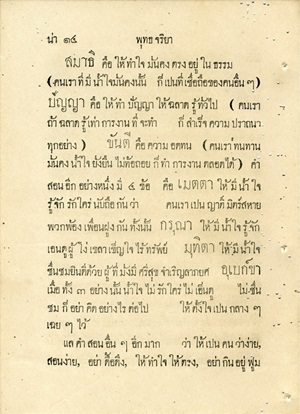 น่า ๑๔ พุทธ จริยา
สมาธิ คือ ให้ ทำ ใจ มั่นคง ตรง อยู่ ใน ธรรม
(คนเรา ที่ มี น้ำใจมั่นคงนั้น ก็ เปนที่เชื่อถือของคนอื่น ๆ)
ปัญญา คือ ให้ ทำ ปัญญา ให้ฉลาด รู้ทั่วไป (คนเรา
ถ้า ฉลาด รู้เท่า การงาน ที่ จะทำ ก็ สำเร็จ ความ ปราถนา
ทุกอย่าง) ขันตี คือ ความ อดทน (คนเรา ทนทาน
มั่นคง น้ำใจ ยั่งยืน ไม่ท้อถอย ก็ ทำ การงาน ตลอดได้) คำ
สอน อีก อย่างหนึ่ง มี ๔ ข้อ คือ เมตตา ให้ มี น้ำใจ
รู้จัก รักใคร่ นับถือ กัน ว่า คนเรา เปน ญาติ มิตร์สหาย
พวกพ้อง เพื่อนฝูง กัน ทั้งนั้น กรุณา ให้ มี น้ำใจ รู้จัก
เอนดู ผู้ โง่ เขลา เข็ญใจ ไร้ ทรัพย์ มุทตา ให้ มี น้ำใจ
ชื่นชมยินดีด้วย ผู้ ที่ มั่งมี ศรีสุข จำเริญลาภยศ อุเบกขา
เมื่อ ทั้ง ๓ อย่าง นั้น น้ำใจ ไม่ รักใคร่ ไม่ เอนดู ไม่ชื่น
ชม ก็ อย่า คิด อย่างไร ต่อไป ให้ ตั้งใจ เปน กลาง ๆ
เฉย ๆ ไว้
แล คำ สอน อื่น ๆ อีก มาก ว่า ให้ เปน คน ว่าง่าย,
สอนง่าย, อย่า ดื้อดึง, ให้ ทำใจ ให้ ตรง, อย่า กิน อยู่ ฟูม